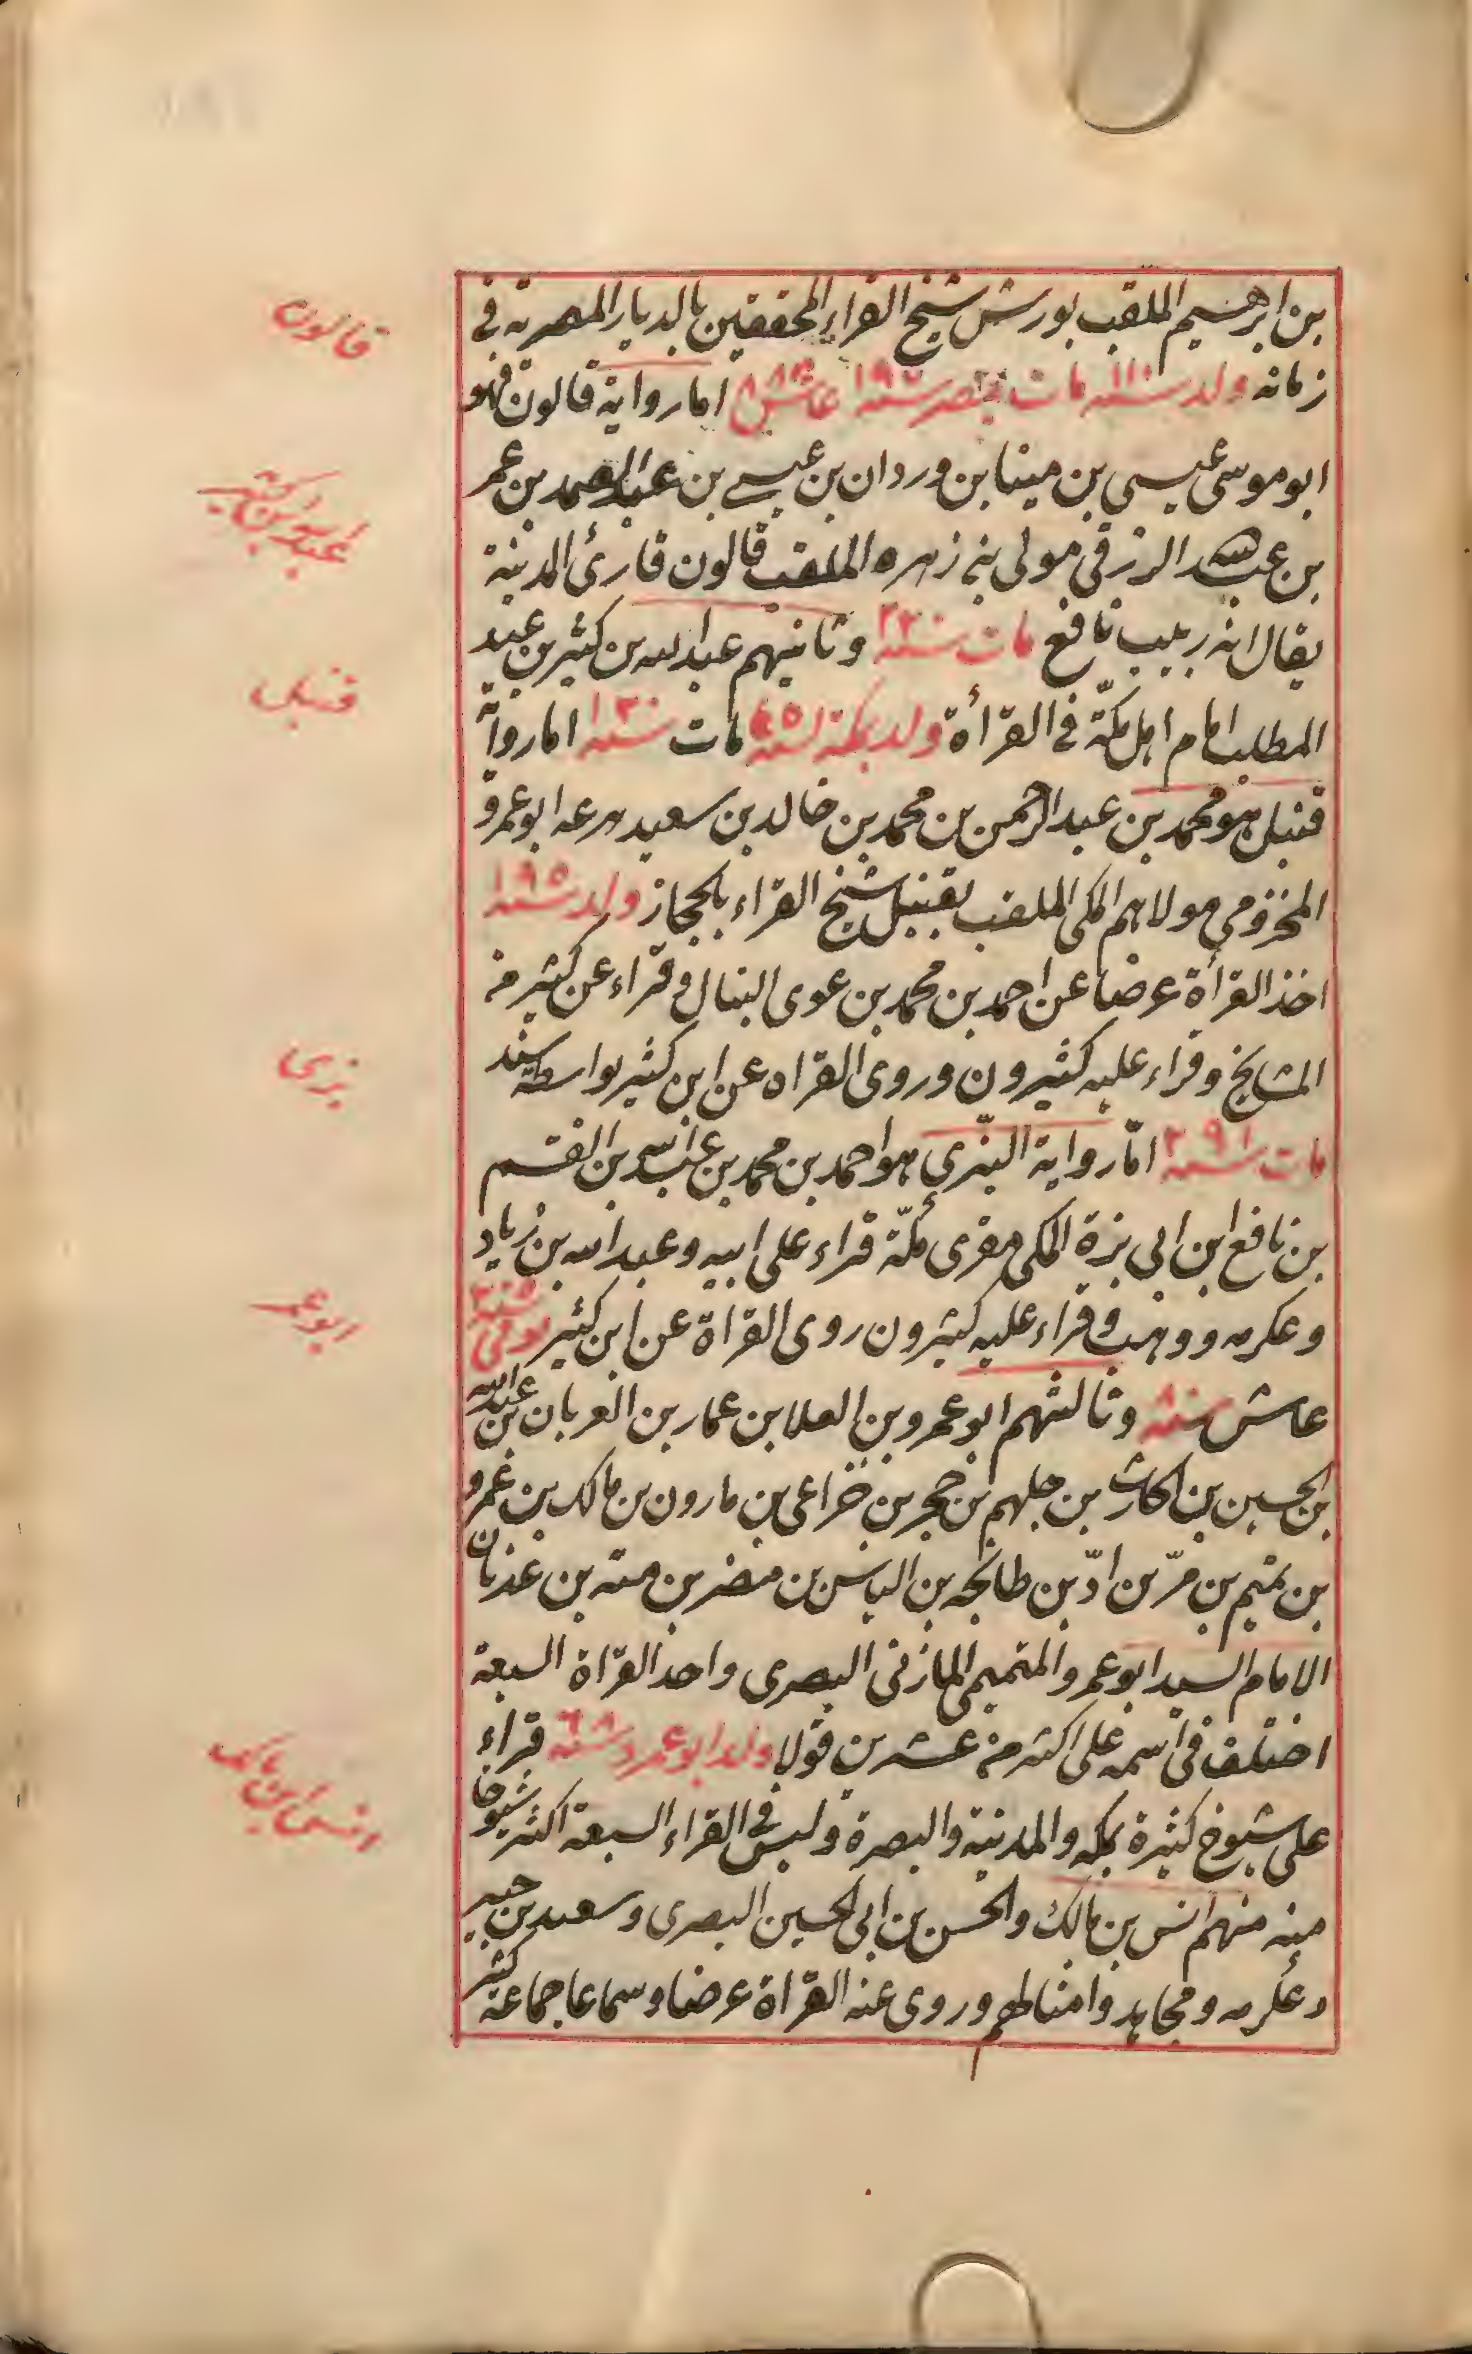 بن ابرهيم الملقب بورش شيخ القراء المحققين بالديار المصرية في
زمانه ولد سنة ١١٠ مات بمصر سنة ١٩٧ عاش ٨٧ اما رواية قالون فهو
ابو موسى عيسى بن مينا بن وردان بن عيسى بن عبد الصمد بن عمر
بن عبد الله الزرقي مولى بني زهره الملقب قالون قارئ المدينة
يقال انه ربيب نافع مات سنة ٢٢٠ وثانيهم عبد الله بن كثير بن عبد
المطلب امام اهل مكّة في القرأة ولد بمكة سنة ٤٥ مات سنة ١٢٠ اما رواية
قنبل هو محمد بن عبد الرحمن بن محمد بن خالد بن سعيد جرعه ابو عمرو
المخزومي مولاهم المكي الملقب بقنبل شيخ القرّاء بالحجاز ولد سنة ١٩٥
اخذ القرأة عرضا عن احمد بن محمد بن عون النبال وقراء عن كثير من
المشايخ وقراء عليه كثيرون وروى القراه عن ابن كثير بواسطة سند
مات سنة ٢٩١ امّا رواية البزّي هو احمد بن محمد بن عبد الله بن القسم
بن نافع ابن ابي بزة المكي مقرى مكّة قراء على ابيه وعبد الله بن زياد
وعكرمه ووهب وقراء عليه كثيرون روى القراة عن ابن كثير توفي سنة ٢٥٠
عاش ٨٠ سنة وثالثهم ابو عمرو بن العلا بن عمار بن العريان بن عبد الله
بن الحسين بن الحارث بن جلهم بن حجر بن خزاعي بن مارون بن مالك بن عمرو
بن تميم بن مرّ بن ادّ بن طابخه بن الياس بن مضر بن معد بن عدنان
الامام السيد ابو عمرو التميمي المازني البصري واحد القرّاة السبعة
اختلف في اسمه على اكثر من عشرين قولا ولد ابو عمرو سنة ٦٨ قراء
على شيوخ كثيرة بمكه والمدينة والبصرة وليس في القراء السبعة اكثر شيوخا
منه منهم انس بن مالك والحسن بن ابي الحسين البصري وسعيد بن جبير
وعكرمه ومجاهد وامثالهم وروى عنه القرّاة عرضا وسماعا جماعة كثير
قالون
عبد الله ابن كثير
قنبل
بزى
ابو عمر
انس ابن مالك